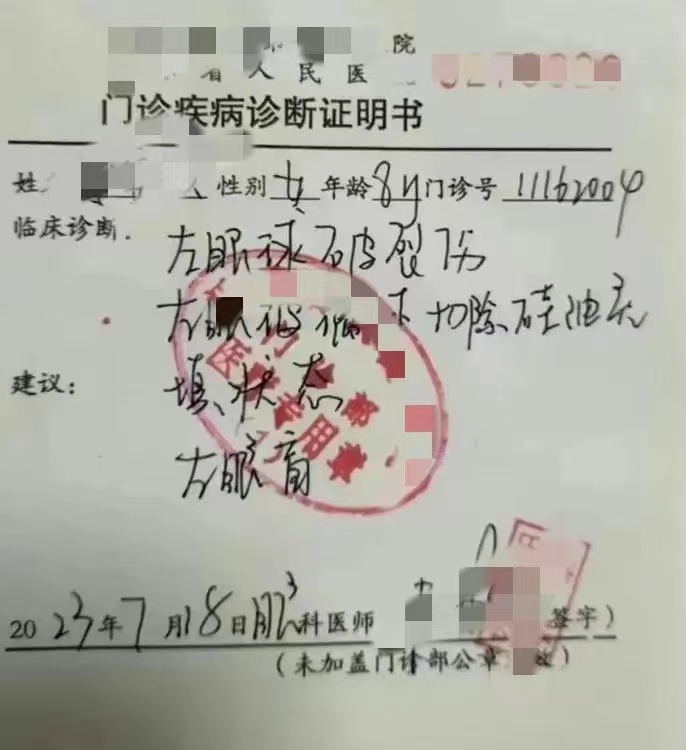 院
省人民医
门诊疾病诊断证明书
姓 性别 女 年龄 8y 门诊号 11162004
临床诊断. 左眼球破裂伤
左眼 切除硅油充
建议: 填状态
左眼盲
2023年7月18日眼科医师 签字)
(未加盖门诊部公章